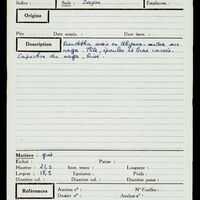 Indice :
Style : Bayon
Emplacem. :
Origine
Prix
Date acquis. :
Date inv. :
Description
Bouddha assis en dhyana-mudra sur
naga. Tête, épaules et bras cassés.
Capuchon du naga, brisé.
Matière : grès
Enduit :
Patine :
Hauteur :
haut. socle :
Longueur :
Largeur :
Epaisseur :
Poids :
Diamètre col. :
Diamètre panse :
References
Ancien n° :
N° Fouilles :
Dossier n° :
Analyse n° :